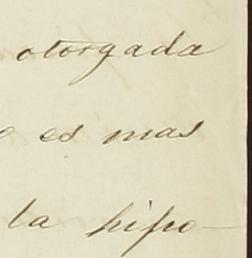 otorgada
es mas
la hipo-